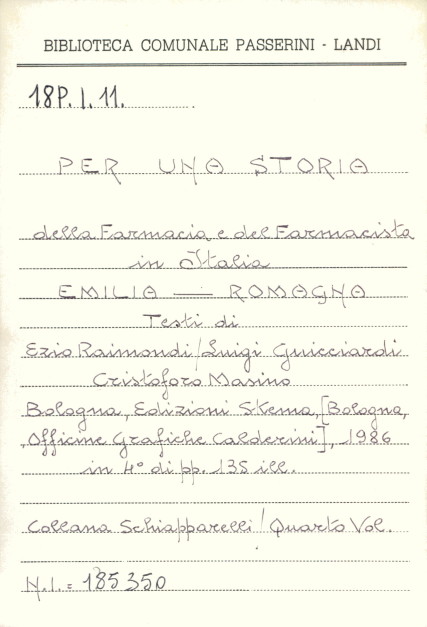 BIBLIOTECA COMUNALE PASSERINI - LANDI
18P. I. 11.
PER UNA STORIA
della Farmacia e del Farmacista
in Italia
EMILIA — ROMAGNA
Testi di
Ezio Raimondi/Luigi Guicciardi
Cristoforo Masino
Bologna, Edizioni Stema, [Bologna,
Officine Grafiche Calderini], 1986
in 4° di pp. 135 ill.
Collana Schiapparelli/Quarto Vol.
N.I. = 185350